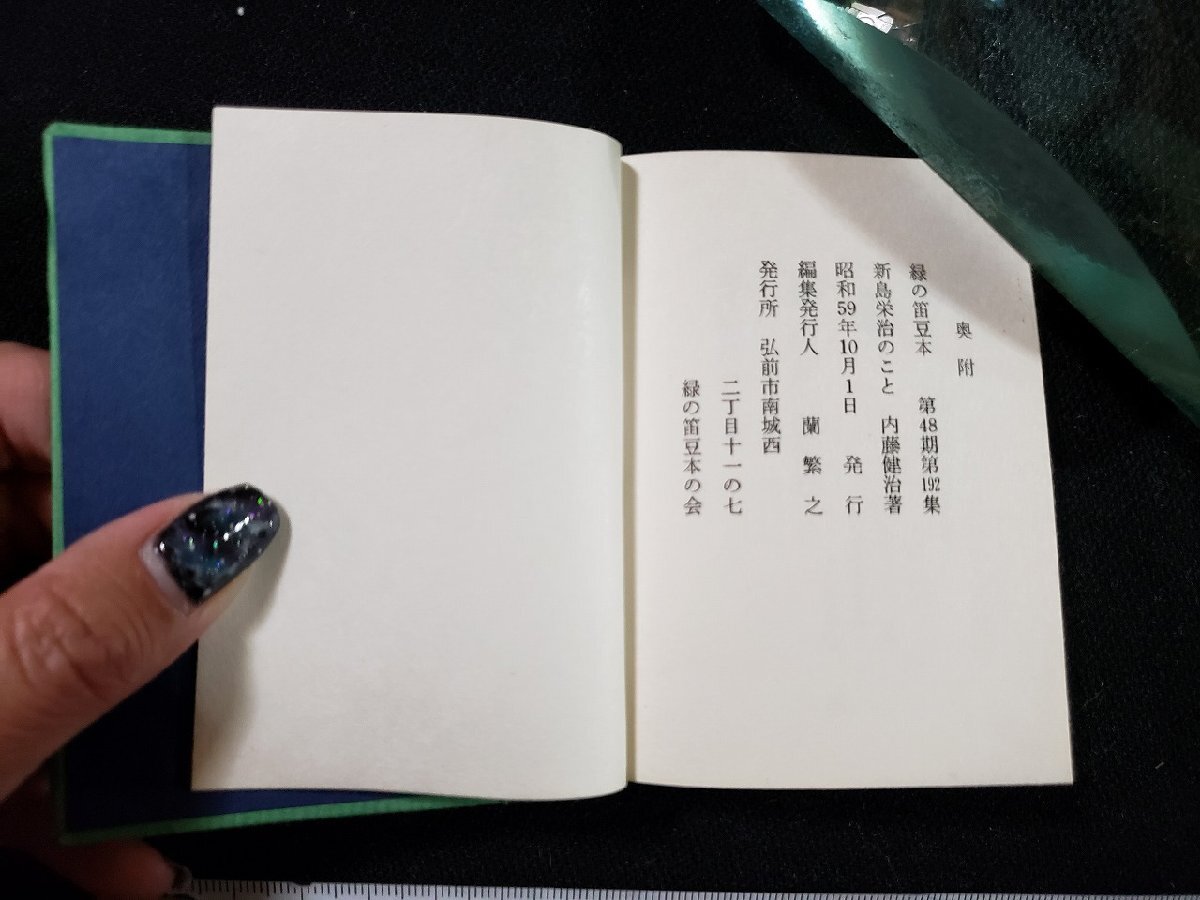 奥附
緑の笛豆本 第48期第192集
新島栄治のこと 内藤健治著
昭和59年10月1日 発行
編集発行人 蘭繁之
発行所 弘前市南城西
二丁目十一の七
緑の笛豆本の会